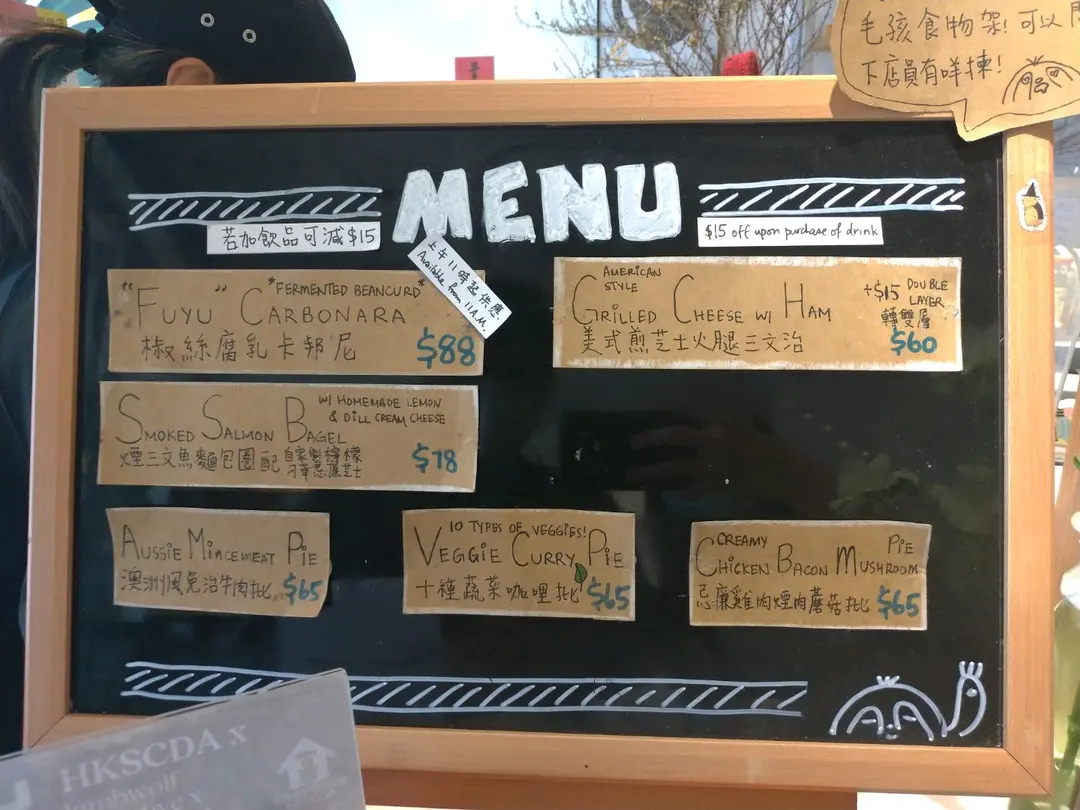 毛孩食物架!可以
下店員有咩揀!
MENU
若加飲品可減$15
$15 off upon purchase of drink
上午11時起供應
Available from 11A.M.
"FUYU" CARBONARA
*FERMENTED BEANCURD*
椒絲腐乳卡邦尼
$88
AMERICAN STYLE
GRILLED CHEESE W/ HAM
美式煎芝士火腿三文治
+$15 DOUBLE
LAYER
轉雙層
$60
SMOKED SALMON BAGEL
W/ HOMEMADE LEMON
& DILL CREAM CHEESE
煙三文魚麵包圈配自家製檸檬
刁草忌廉芝士
$78
AUSSIE MINCEMEAT PIE
澳洲風免治牛肉批
$65
10 TYPES OF VEGGIES!
VEGGIE CURRY PIE
十種蔬菜咖哩批
$65
CREAMY
CHICKEN BACON MUSHROOM PIE
忌廉雞肉煙肉蘑菇批
$65
HKSCDA x